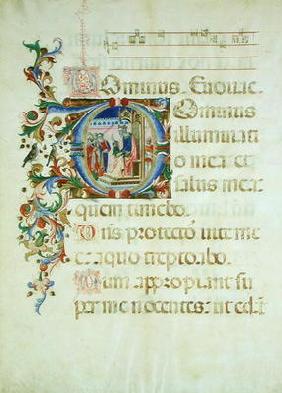 Dominus. Euouae.
Dominus
illuminati
o mea et
salus mea
quem timebo.
Dñs protector uite me
e: a quo trepidabo.
Dum appropiant su
per me nocentes: ut